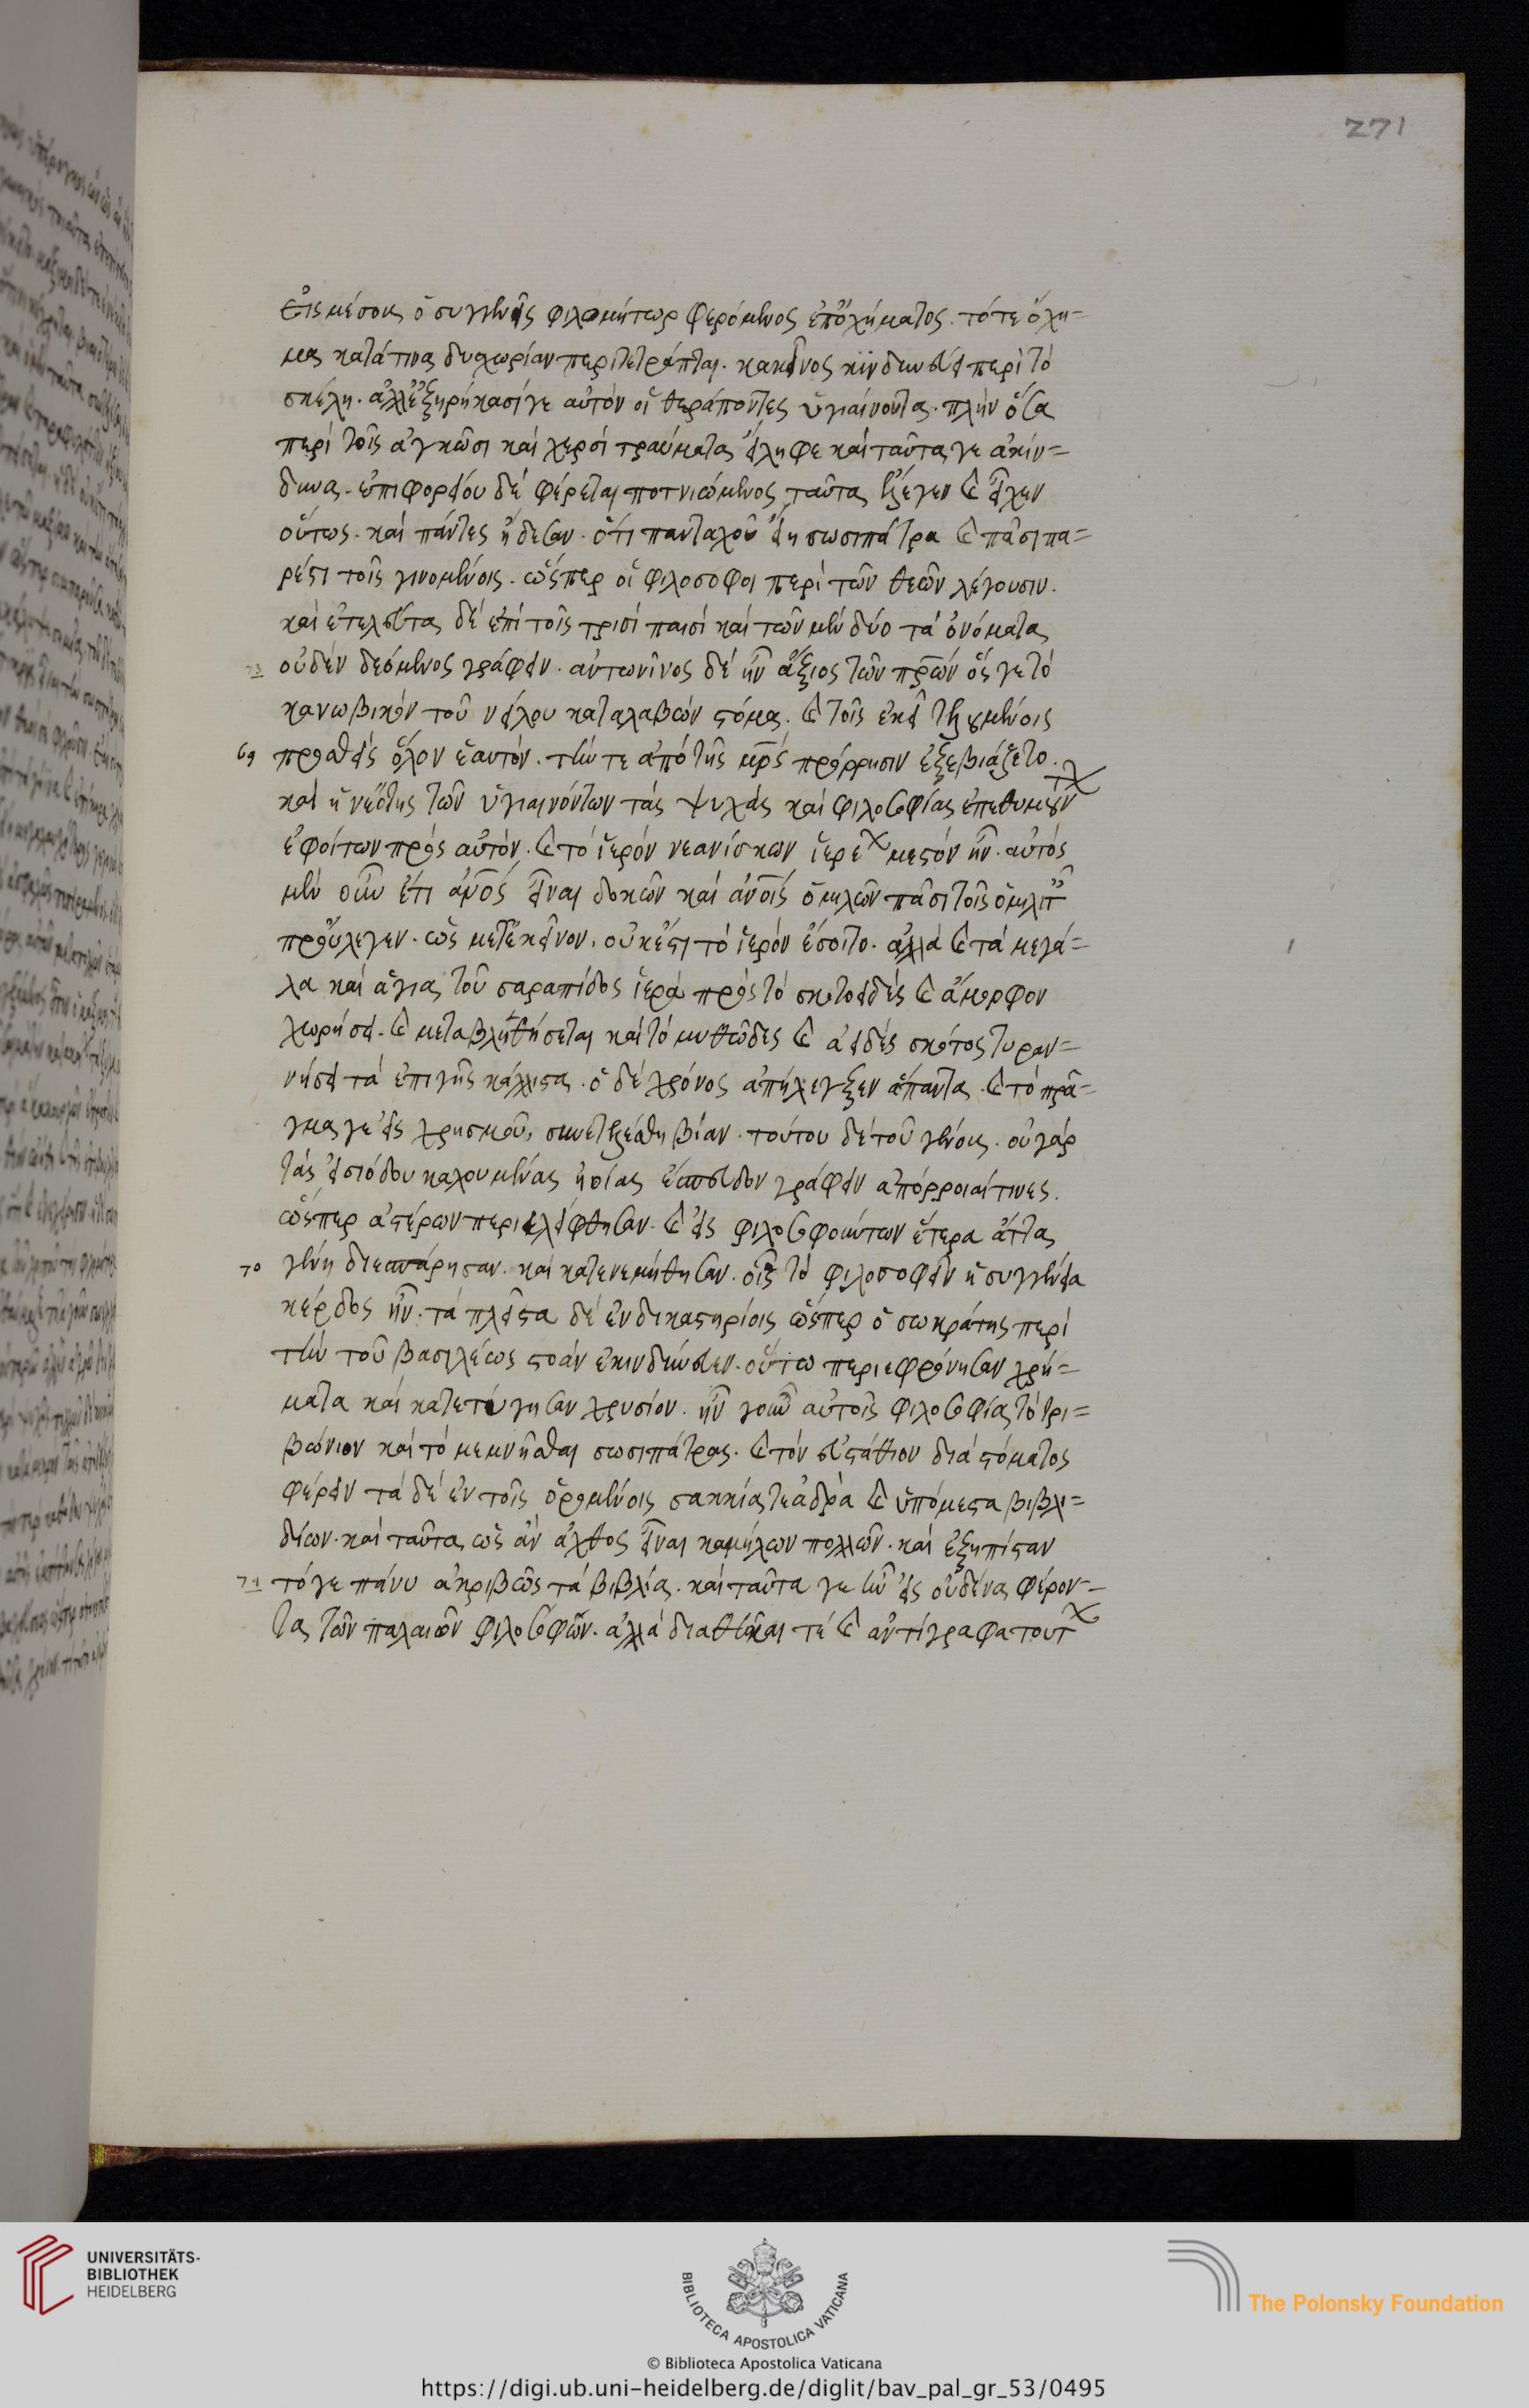 271
τί μέσοις ὁ συγγενὴς φιλομήτωρ φερόμενος ἐπ' ὀχήματος. τό τε ὄχη=
μα κατά τινα δυσχωρίαν περιτετράπται. κακεῖνος κινδυνεύει περὶ τὸ
σκέλη. ἀλλ' ἐξηρήκασί γε αὐτὸν οἱ θεράποντες ὑγιαίνοντα. πλὴν ὅσα
περὶ τοῖς ἀγκῶσι καὶ χερσὶ τραύματα εἴληφε καὶ ταῦτα γε ἀκίν=
δυνα. ἐπὶ φορείου δὲ φέρεται ποτνιώμενος ταῦτα ἔλεγεν καὶ εἶχεν
οὕτως. καὶ πάντες ᾔδεσαν. ὅτι πανταχοῦ εἴη σωσιπάτρα καὶ πᾶσι πα=
ρέστι τοῖς γινομένοις. ὥσπερ οἱ φιλόσοφοι περὶ τῶν θεῶν λέγουσιν.
καὶ ἐτελεύτα δὲ ἐπὶ τοῖς τρισὶ παισὶ καὶ τῶν μὲν δύο τὰ ὀνόματα
οὐδὲν δεόμενος γράφειν. ἀντωνῖνος δὲ ἦν ἄξιος τῶν πρῶν ὅς γε τὸ
κανωβικὸν τοῦ νείλου καταλαβὼν στόμα. καὶ τοῖς ἐκεῖ τελουμένοις
69 προσθεὶς ὅλον ἑαυτὸν. τήν τε ἀπὸ τῆς μρς πρόρρησιν ἐξεβιάζετο.
καὶ ἡ νεότης τῶν ὑγιαινόντων τὰς ψυχὰς καὶ φιλοσοφίας ἐπεθυμουν
ἐφοίτων πρὸς αὐτὸν. καὶ τὸ ἱερὸν νεανίσκων ἱερε μεστὸν ἦν. αὐτὸς
μὲν οὖν ἔτι ανος εἶναι δοκῶν καὶ ανοις ὁμιλῶν πᾶσι τοῖς ὁμιλητ
προύλεγεν. ὡς μετ' ἐκεῖνον. οὐκέτι τὸ ἱερὸν ἔσοιτο. ἀλλὰ καὶ τὰ μεγά=
λα καὶ ἅγια τοῦ σαραπίδος ἱερὰ πρὸς τὸ σκοτοειδὲς καὶ ἄμορφον
χωρήσει. καὶ μεταβληθήσεται καὶ τὸ μυθῶδες καὶ ἀειδὲς σκότος τυραν=
νήσει τὰ ἐπὶ γῆς κάλλιστα. ὁ δὲ χρόνος ἀπήλεγξεν ἅπαντα. καὶ τὸ πρᾶ=
γμα γε εἰς χρησμοῦ, συνετελέσθη βίαν. τούτου δὲ τοῦ γένους. οὐ γὰρ
τὰς ἡσιόδου καλουμένας ἠοίας ἔσπευδον γράφειν ἀπόρροιαί τινες.
ὥσπερ ἀστέρων περιελείφθησαν. καὶ εἰς φιλοσοφούντων ἕτερα ἄττα
70 γένη διεσπάρησαν. καὶ κατενεμήθησαν. οἷς τὸ φιλοσοφεῖν ἡ συγγένεια
κέρδος ἦν. τὰ πλεῖστα δὲ ἐν δικαστηρίοις ὥσπερ ὁ σωκράτης περὶ
τὴν τοῦ βασιλέως στοὰν ἐκινδύνευεν. οὕτω περιεφρόνησαν χρή=
ματα καὶ κατεστύγησαν χρυσίον. ἦν γοῦν αὐτοῖς φιλοσοφία τὸ τρι=
βώνιον καὶ τὸ μεμνῆσθαι σωσιπάτρας. καὶ τὸν εὐστάθιον διὰ στόματος
φέρειν τὰ δὲ ἐν τοῖς ὁρομένοις σακκία τε ἁδρὰ καὶ ὑπόμεστα βιβλι=
δίων. καὶ ταῦτα ὡς ἂν ἄχθος εἶναι καμήλων πολλῶν. καὶ ἐξηπίσταν
71 τό γε πάνυ ἀκριβῶς τὰ βιβλία. καὶ ταῦτα γε ἦν εἰς οὐδένα φέρον=
τα τῶν παλαιῶν φιλοσόφων. ἀλλὰ διαθῆκαι τὲ καὶ ἀντίγραφα τουτ
UNIVERSITÄTS-
BIBLIOTHEK
HEIDELBERG
BIBLIOTECA APOSTOLICA VATICANA
The Polonsky Foundation
© Biblioteca Apostolica Vaticana
https://digi.ub.uni-heidelberg.de/diglit/bav_pal_gr_53/0495